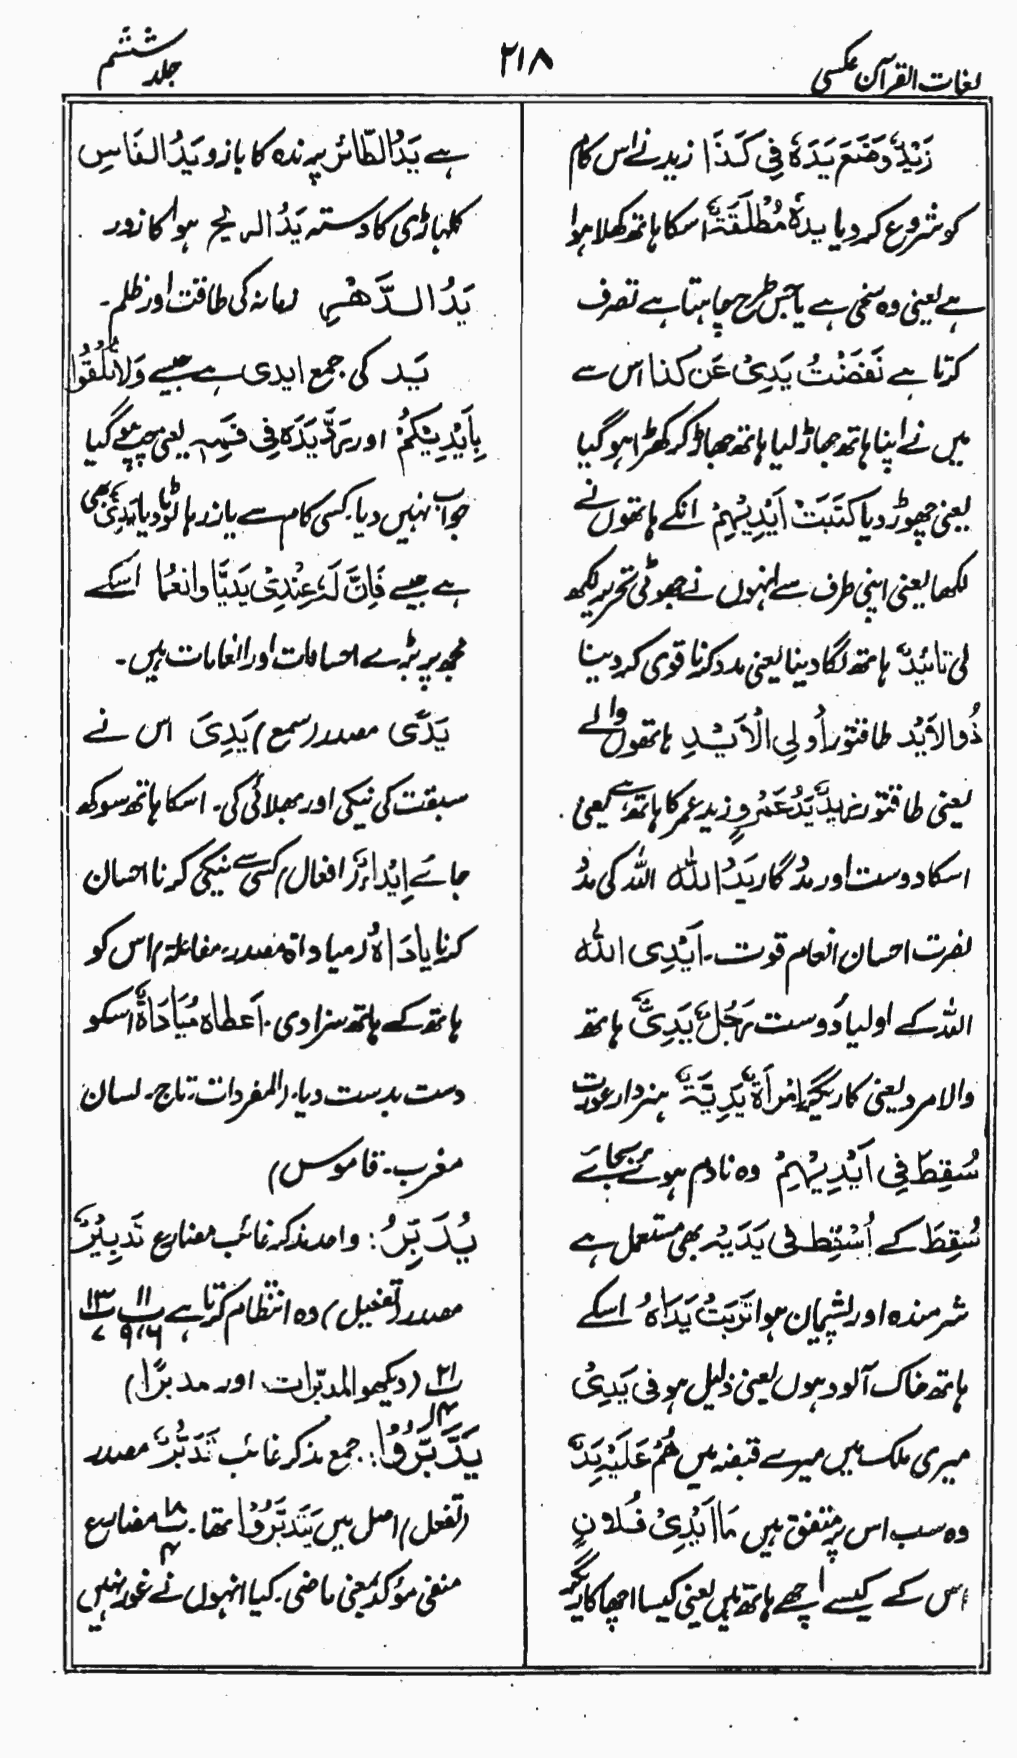 لغات القرآن عکسی
۲۱۸
جلد ششم
زَیْدٌ وَضَعَ یَدَہٗ فِی کَذَا زید نے اس کام
کو شروع کر دیا یدہٗ مُطْلَقَۃٌ اسکا ہاتھ کھلا ہوا
ہے یعنی وہ سخی ہے یا جس طرح چاہتا ہے تصرف
کرتا ہے نَفَضْتُ یَدِیْ عَن کذا اس سے
میں نے اپنا ہاتھ جھاڑ لیا ہاتھ جھاڑ کر کھڑا ہو گیا
یعنی چھوڑ دیا کَتَبَتْ اَیْدِیْہِمْ انکے ہاتھوں نے
لکھا یعنی اپنی طرف سے انہوں نے جھوٹی تحریر لکھ
لی تائیدٌ ہاتھ لگا دینا یعنی مدد کرنا قوی کر دینا
ذُوالاَیْد طاقتور اُولِی الْاَیْدِ ہاتھوں والے
یعنی طاقتور زیدٌ یَدُ عَمْرٍو زید عمر کا ہاتھ ہے یعنی
اسکا دوست اور مددگار یَدُ اللہ اللہ کی مدد
نصرت احسان انعام قوت۔ اَیْدِی اللہ
اللہ کے اولیا دوست رَجُلٌ یَدِیٌّ ہاتھ
والا مرد یعنی کاریگر اِمْرَأَۃٌ یَدِیَّۃٌ ہنر دار عورت
سُقِطَ فِی اَیْدِیْہِمْ وہ نادم ہوئے بجائے
سُقِطَ کے اُسْقِطَ فی یَدَیْہِ بھی مستعمل ہے
شرمندہ اور پشیمان ہوا تَرِبَتْ یَدَاہُ اسکے
ہاتھ خاک آلود ہوں یعنی ذلیل ہو فی یَدِیْ
میری ملک میں میرے قبضہ میں ھُمْ عَلَیْہِ یَدٌ
وہ سب اس پر متفق ہیں مَا اَیْدِیْ فُلَانٍ
اس کے کیسے اچھے ہاتھ ہیں یعنی کیسا اچھا کاریگر
ہے یَدُ الطَّائر پرندہ کا بازو یَدُ الفَاسِ
کلہاڑی کا دستہ یَدُ الریح ہوا کا زور
یَدُ الدَّھْرِ زمانہ کی طاقت اور ظلم۔
یَد کی جمع ایدی ہے جیسے وَلَا تُلْقُوا
بِاَیْدِیْکُمْ اور رَدَّ یَدَہٗ فِی فَمِہٖ یعنی چپ ہو گیا
جواب نہیں دیا۔ کسی کام سے باز رہا لوٹا دیا یَدِیٌّ بھی
ہے جیسے فَاِنَّ لَہٗ عِنْدِیْ یَدِیًّا وانعُما اسکے
مجھ پر بڑے احسانات اور انعامات ہیں۔
یَدًی مصدر (سمع) یَدِیَ اس نے
سبقت کی نیکی اور بھلائی کی۔ اسکا ہاتھ سوکھ
جائے اِیْدَاءٌ (افعال) کسی سے نیکی کرنا احسان
کرنا یَادَاہُ (میاداۃ مصدر۔ مفاعلۃ) اس کو
ہاتھ کے ہاتھ سزا دی۔ اَعطاہ مُیَادَاۃً اسکو
دست بدست دیا۔ (المفردات۔ تاج۔ لسان
مغرب۔ قاموس)
یُدَبِّرُ: واحد مذکر غائب مضارع تَدبِیْرٌ
مصدر (تفعیل) وہ انتظام کرتا ہے ۱۱ پ ۹،۶ ۱۳ پ ۷
۲۱ پ ۱۴ (دیکھو المدبّرات اور مدبرًا)
یَدَّبَّرُوا: جمع مذکر غائب تَدَبُّرٌ مصدر
(تفعل) اصل میں یَتَدَبَّرُوْا تھا۔ ۱۸ پ ۴ مضارع
منفی مؤکد بمعنی ماضی۔ کیا انہوں نے غور نہیں